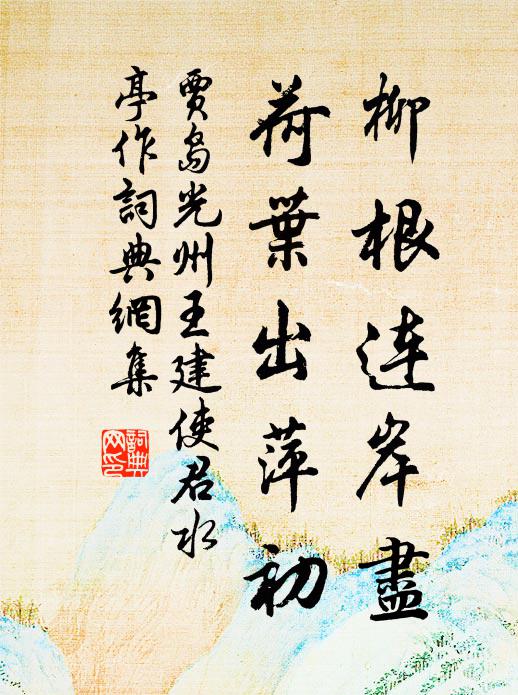 柳根连岸盡
荷葉出萍初
賈島光州王建使君水
亭作詞典網集
詞典
網印